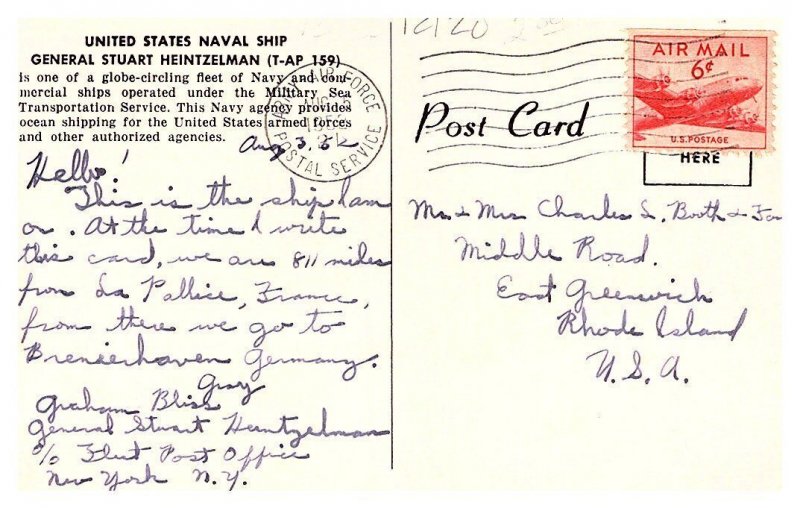 UNITED STATES NAVAL SHIP
GENERAL STUART HEINTZELMAN (T-AP 159)
is one of a globe-circling fleet of Navy and com-
mercial ships operated under the Military Sea
Transportation Service. This Navy agency provides
ocean shipping for the United States armed forces
and other authorized agencies.
Aug 3,
Hello!
This is the ship I am
on. At the time I write
this card, we are 811 miles
from La Pallice, France,
from there we go to
Bremerhaven Germany.
Gray
Graham Bliss
General Stuart Heintzelman
c/o Fleet Post Office
New York N.Y.
ARMY AIR FORCE
AUG
POSTAL SERVICE
Post Card
AIR MAIL
6¢
U.S. POSTAGE
HERE
Mr & Mrs Charles L. Booth & Fam
Middle Road.
East Greenwich
Rhode Island
U.S.A.